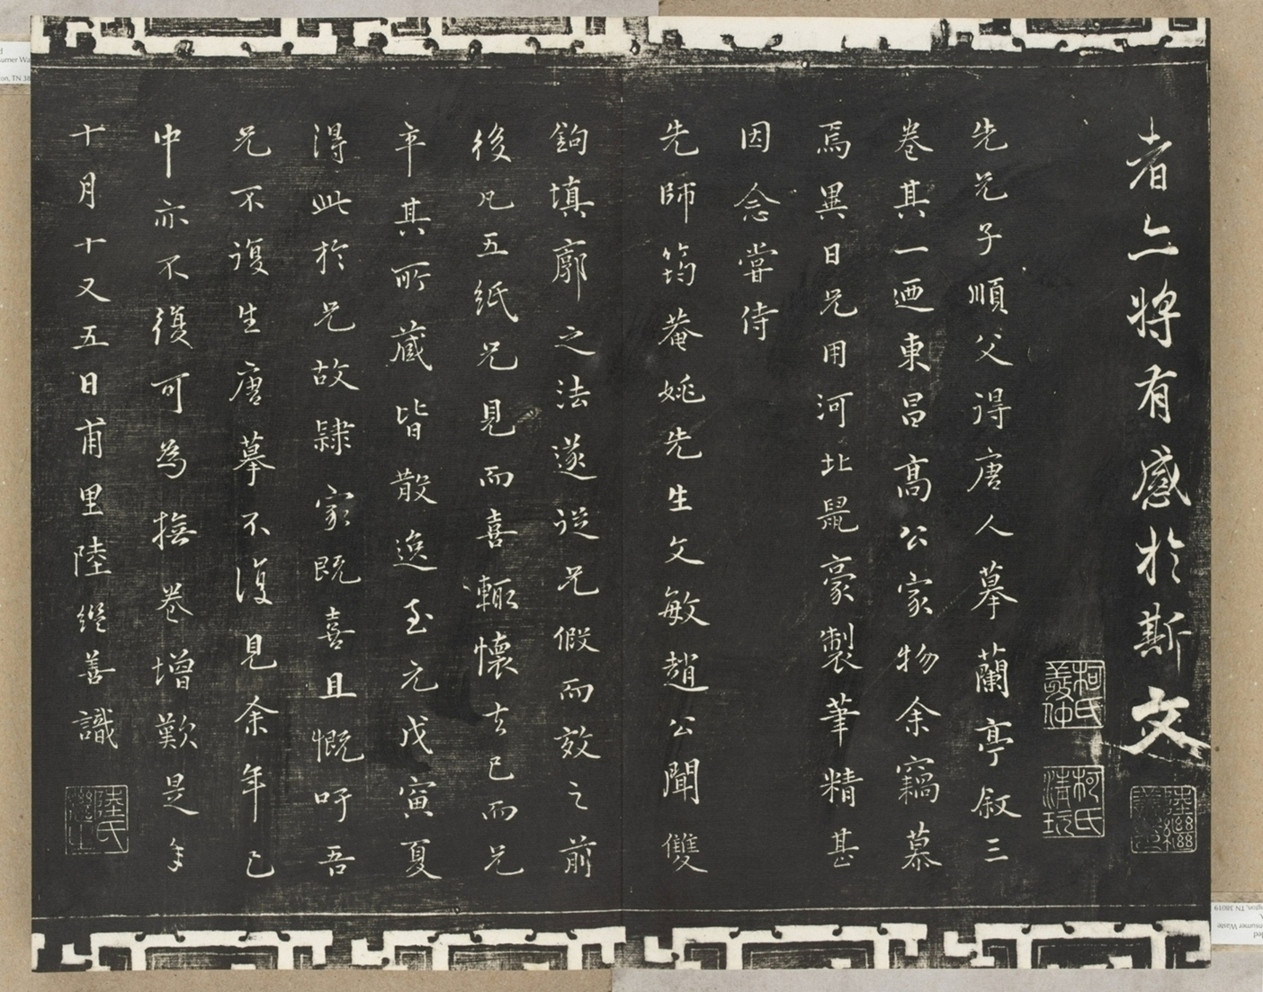 者亦將有感於斯文
先兄子順父得唐人摹蘭亭敘三
卷其一迺東昌高公家物余竊慕
焉異日兄用河北鼠豪製筆精甚
因念嘗侍
先師筠菴姚先生文敏趙公聞雙
鉤填廓之法遂從兄假而效之前
後凡五紙兄見而喜輒懷去已而兄
卒其所藏皆散逸至元戊寅夏
得此於兄故隸家既喜且慨吁吾
兄不復生唐摹不復見余年已
中亦不復可為撫卷增歎是年
十月十又五日甫里陸繼善識
柯氏敬仲
柯氏清玩
陸繼善
陸氏